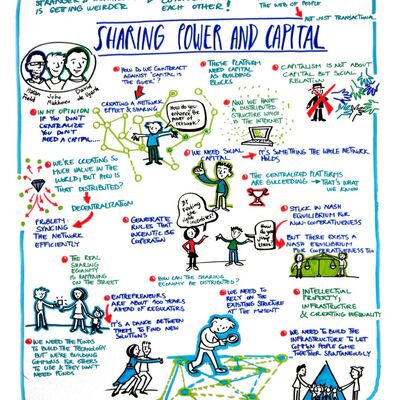 IS GETTING WEIRDER
EACH OTHER!
THE WEB OF PEOPLE
NOT JUST TRANSACTIONAL
SHARING POWER AND CAPITAL
HOW DO WE COUNTERACT
AGAINST CAPITAL IS
THE POWER?
THESE PLATFORMS
NEED CAPITAL
AS BUILDING
BLOCKS
CAPITALISM IS NOT ABOUT
CAPITAL BUT SOCIAL
RELATION
David
John
IN MY OPINION
IF YOU DON'T
CENTRALIZE
YOU DON'T
NEED A CAPITAL...
CREATING A NETWORK
EFFECT & SHARING
How do you
enhance the
power of
NOW WE HAVE
A DISTRIBUTED
STRUCTURE WHICH
IS THE INTERNET
WE NEED SOCIAL
CAPITAL
IT'S SOMETHING THE WHOLE NETWORK
HOLDS
WE'RE CREATING SO
MUCH VALUE IN THE
WORLD, BUT HOW IS
THAT DISTRIBUTED?
DECENTRALIZATION
THE CENTRALIZED PLATFORMS
ARE SUCCEEDING
THAT'S WHAT
WE KNOW
PROBLEM:
SYNCING
THE NETWORK
EFFICIENTLY
GENERATE
RULES THAT
INCENTIVISE
COOPERATION
By finding
the right
incentives!
STUCK IN NASH
EQUILIBRIUM FOR
NON-COOPERATIVENESS
BUT THERE EXISTS
A NASH EQUILIBRIUM
FOR COOPERATIVENESS TOO
THE REAL
SHARING
ECONOMY
IS HAPPENING
ON THE STREET
HOW CAN THE SHARING
ECONOMY BE DISTRIBUTED?
ENTREPRENEURS
ARE ABOUT 100 YEARS
AHEAD OF REGULATORS
IT'S A DANCE BETWEEN
THEM TO FIND NEW
SOLUTIONS
WE NEED TO
RELY ON THE
EXISTING STRUCTURE
AT THE MOMENT
INTELLECTUAL
PROPERTY,
INFRASTRUCTURE
& CREATING INEQUALITY
WE NEED THE FUNDS
TO BUILD THE TECHNOLOGY
BUT WE'RE BUILDING
COMMONS FOR OTHERS
TO USE & THEY WON'T
NEED FUNDS
WE NEED TO BUILD THE
INFRASTRUCTURE TO LET
PEOPLE COME
TOGETHER SPONTANEOUSLY